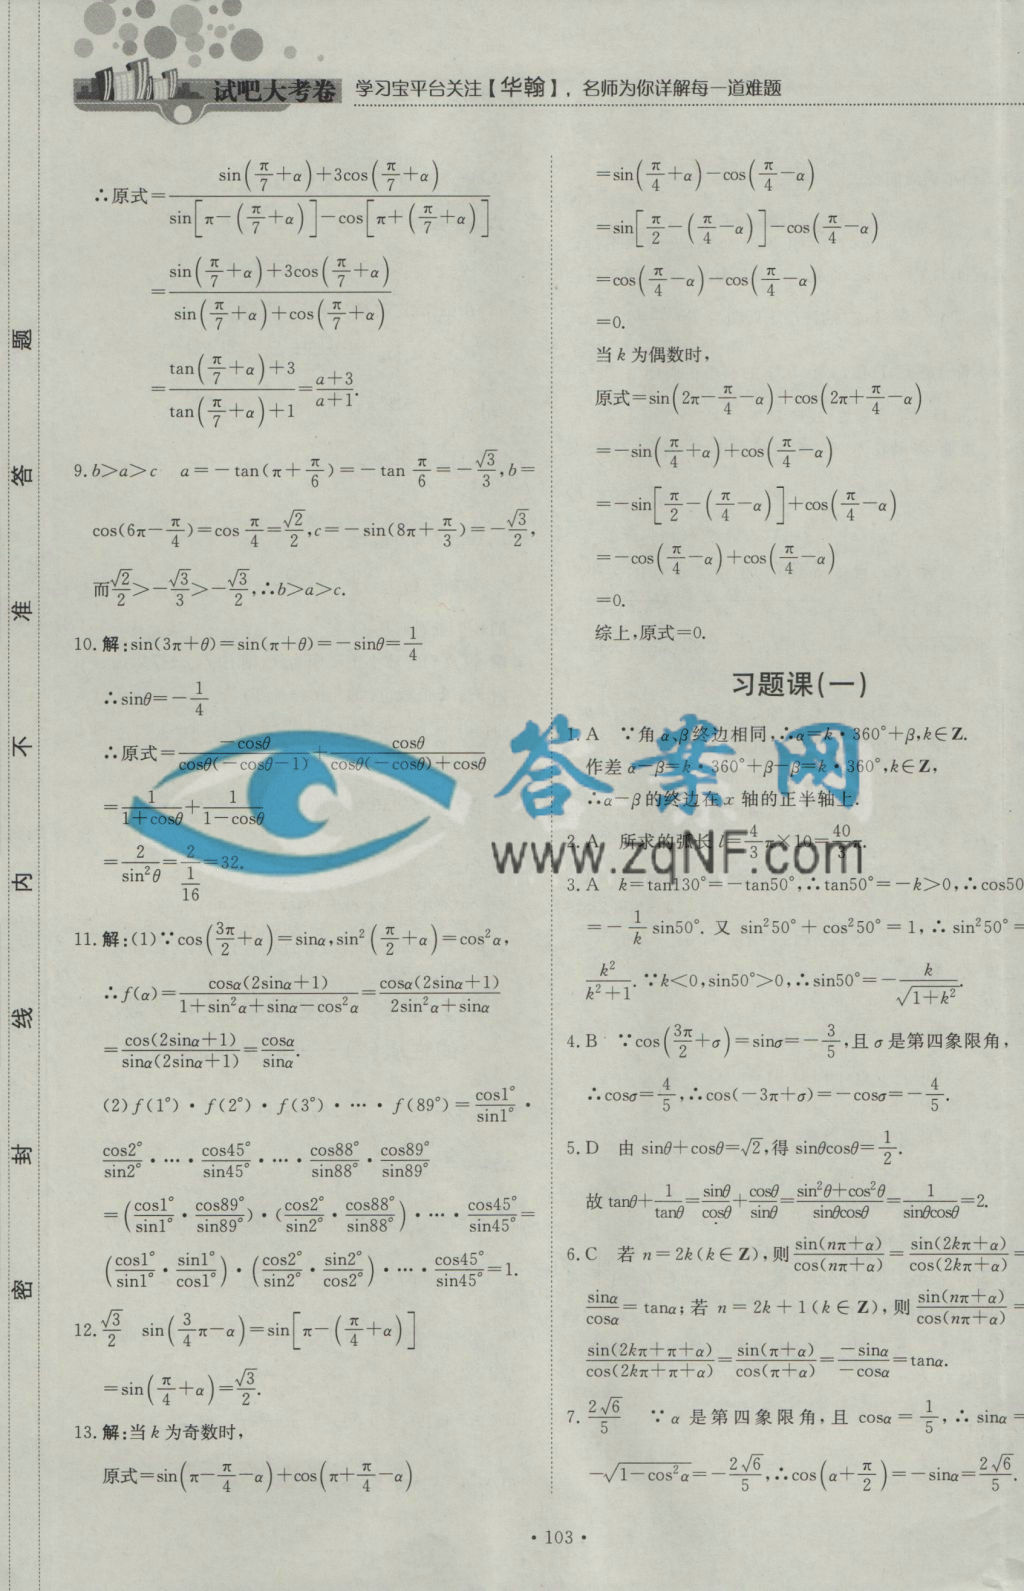 试吧大考卷 学习宝平台关注【华翰】，名师为你详解每一道难题
∴原式=\frac{sin(π/7+α)+3cos(π/7+α)}{sin[π-(π/7+α)]-cos[π+(π/7+α)]}
=\frac{sin(π/7+α)+3cos(π/7+α)}{sin(π/7+α)+cos(π/7+α)}
=\frac{tan(π/7+α)+3}{tan(π/7+α)+1}=\frac{a+3}{a+1}.
9. b>a>c a=-tan(π+π/6)=-tan π/6=-√3/3,b=
cos(6π-π/4)=cos π/4=√2/2,c=-sin(8π+π/3)=-√3/2,
而√2/2>-√3/3>-√3/2,∴b>a>c.
10. 解:sin(3π+θ)=sin(π+θ)=-sinθ=1/4
∴sinθ=-1/4
∴原式=\frac{-cosθ}{cosθ(-cosθ-1)}+\frac{cosθ}{cosθ(-cosθ)+cosθ}
=\frac{1}{1+cosθ}+\frac{1}{1-cosθ}
=\frac{2}{sin²θ}=\frac{2}{1/16}=32.
11. 解:(1)∵cos(3π/2+α)=sinα,sin²(π/2+α)=cos²α,
∴f(α)=\frac{cosα(2sinα+1)}{1+sin²α+sinα-cos²α}=\frac{cosα(2sinα+1)}{2sin²α+sinα}
=\frac{cos(2sinα+1)}{sinα(2sinα+1)}=\frac{cosα}{sinα}.
(2)f(1°)·f(2°)·f(3°)·…·f(89°)=\frac{cos1°}{sin1°}·
\frac{cos2°}{sin2°}·…·\frac{cos45°}{sin45°}·…·\frac{cos88°}{sin88°}·\frac{cos89°}{sin89°}
=(\frac{cos1°}{sin1°}·\frac{cos89°}{sin89°})·(\frac{cos2°}{sin2°}·\frac{cos88°}{sin88°})·…·\frac{cos45°}{sin45°}=
(\frac{cos1°}{sin1°}·\frac{sin1°}{cos1°})·(\frac{cos2°}{sin2°}·\frac{sin2°}{cos2°})·…·\frac{cos45°}{sin45°}=1.
12. √3/2 sin(3/4π-α)=sin[π-(π/4+α)]
=sin(π/4+α)=√3/2.
13. 解:当k为奇数时,
原式=sin(π-π/4-α)+cos(π+π/4-α)
=sin(π/4+α)-cos(π/4-α)
=sin[π/2-(π/4-α)]-cos(π/4-α)
=cos(π/4-α)-cos(π/4-α)
=0.
当k为偶数时,
原式=sin(2π-π/4-α)+cos(2π+π/4-α)
=-sin(π/4+α)+cos(π/4-α)
=-sin[π/2-(π/4-α)]+cos(π/4-α)
=-cos(π/4-α)+cos(π/4-α)
=0.
综上,原式=0.
习题课(一)
1. A ∵角α、β终边相同,∴α=k·360°+β,k∈Z.
作差α-β=k·360°+β-β=k·360°,k∈Z,
∴α-β的终边在x轴的正半轴上.
2. A 所求的弧长l=4/3π×10=40/3π.
3. A k=tan130°=-tan50°,∴tan50°=-k>0,∴cos50
=-\frac{1}{k}sin50°. 又 sin²50°+cos²50°=1,∴sin²50°=
\frac{k²}{k²+1}.∵k<0,sin50°>0,∴sin50°=-\frac{k}{√(1+k²)}.
4. B ∵cos(3π/2+σ)=sinσ=-3/5,且σ是第四象限角,
∴cosσ=4/5,∴cos(-3π+σ)=-cosσ=-4/5.
5. D 由sinθ+cosθ=√2,得sinθcosθ=1/2.
故tanθ+\frac{1}{tanθ}=\frac{sinθ}{cosθ}+\frac{cosθ}{sinθ}=\frac{sin²θ+cos²θ}{sinθcosθ}=\frac{1}{sinθcosθ}=2.
6. C 若n=2k(k∈Z),则\frac{sin(nπ+α)}{cos(nπ+α)}=\frac{sin(2kπ+α)}{cos(2kπ+α)}=
\frac{sinα}{cosα}=tanα;若n=2k+1(k∈Z),则\frac{sin(nπ+α)}{cos(nπ+α)}=
\frac{sin(2kπ+π+α)}{cos(2kπ+π+α)}=\frac{sin(π+α)}{cos(π+α)}=\frac{-sinα}{-cosα}=tanα.
7. 2√6/5 ∵α是第四象限角,且cosα=1/5,∴sinα=
-√(1-cos²α)=-2√6/5,∴cos(α+π/2)=-sinα=2√6/5.
·103·
密 封 线 内 不 准 答 题
答案网
www.zqNF.com